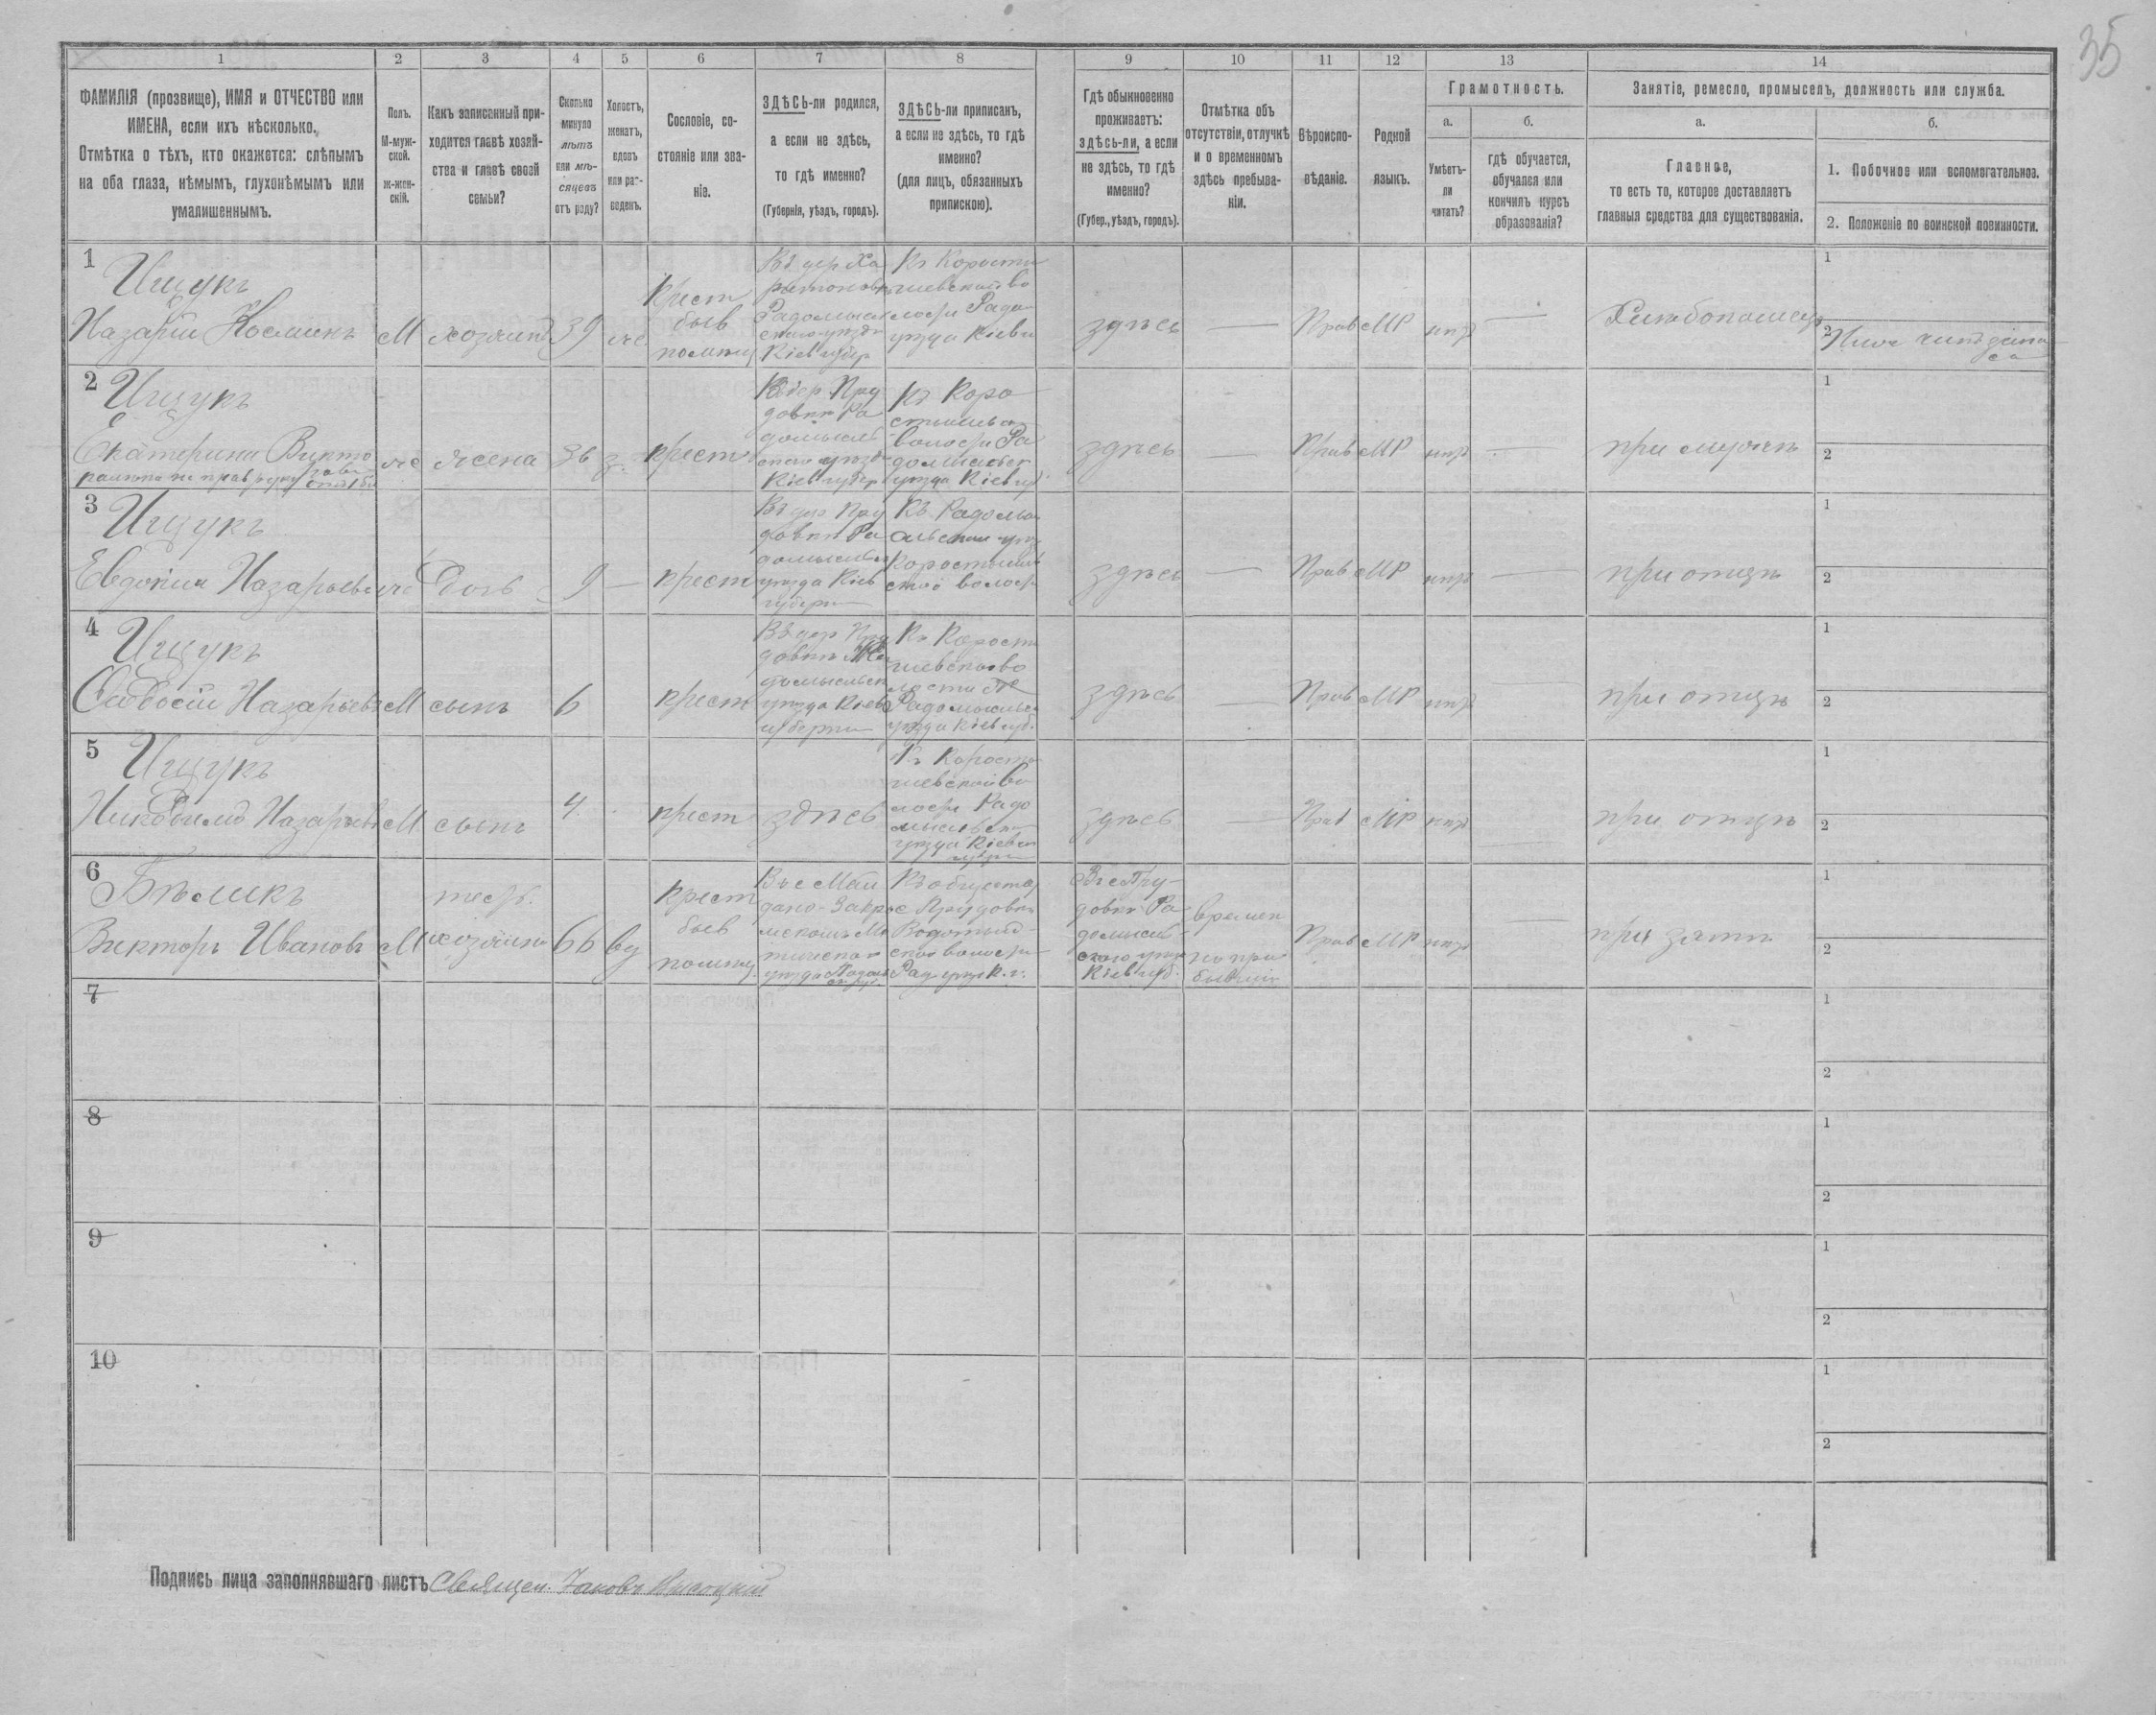 35
1 2 3 4 5 6 7 8 9 10 11 12 13 14
ФАМИЛІЯ (прозвище), ИМЯ и ОТЧЕСТВО или
ИМЕНА, если ихъ нѣсколько.
Отмѣтка о тѣхъ, кто окажется: слѣпымъ
на оба глаза, нѣмымъ, глухонѣмымъ или
умалишеннымъ.
Полъ.
М-муж-
ской.
ж-жен-
скій.
Какъ записанный при-
ходится главѣ хозяй-
ства и главѣ своей
семьи?
Сколько
минуло
лѣтъ
или мѣ-
сяцевъ
отъ роду?
Холостъ,
женатъ,
вдовъ
или раз-
веденъ.
Сословіе, со-
стояніе или зва-
ніе.
ЗДѢСЬ-ли родился,
а если не здѣсь,
то гдѣ именно?
(Губернія, уѣздъ, городъ).
ЗДѢСЬ-ли приписанъ,
а если не здѣсь, то гдѣ
именно?
(для лицъ, обязанныхъ
припискою).
Гдѣ обыкновенно
проживаетъ:
здѣсь-ли, а если
не здѣсь, то гдѣ
именно?
(Губер., уѣздъ, городъ).
Отмѣтка объ
отсутствіи, отлучкѣ
и о временномъ
здѣсь пребыва-
ніи.
Вѣроиспо-
вѣданіе.
Родной
языкъ.
Грамотность.
а.
Умѣетъ-
ли
читать?
б.
гдѣ обучается,
обучался или
кончилъ курсъ
образованія?
Занятіе, ремесло, промыселъ, должность или служба.
а.
Главное,
то есть то, которое доставляетъ
главныя средства для существованія.
б.
1. Побочное или вспомогательное.
2. Положеніе по воинской повинности.
1
Ищукъ
Назарій
М
хозяинъ
39
крест
быв
помѣщ
Радомысл
Кіев губер
Къ Корости
шевской во
лости Радо
уѣзда Кіевск
здѣсь
—
Прав
МР
нѣтъ
—
Хлѣбопашецъ
1
2
2
Ищукъ
Екатерина Викто
рова
жена
36
з.
крест
Въ дер Пру
довкѣ Ра
домысль
Кіев губер
Къ Коро
стышевс
волости Ра
домысльск
уѣзда Кіев губ
здѣсь
—
Прав
МР
нѣтъ
—
при мужѣ
1
2
3
Ищукъ
Евдокія Назарьев
Дочь
9
—
крест
Въ дер Пру
довкѣ Ра
домысльс
уѣзда Кіев
губерн
Къ Радомы
сльском уѣз
Коростышев
ской волост
здѣсь
—
Прав
МР
нѣтъ
—
при отцѣ
1
2
4
Ищукъ
Ѳеодосій Назарьевъ
М
сынъ
6
крест
Въ дер Пру
довкѣ
домысльск
уѣзда Кіевс
губерни
Къ Корости
шевской во
лости
Радомысльс
уѣзда Кіев губ.
здѣсь
—
Прав
МР
нѣтъ
при отцѣ
1
2
5
Ищукъ
Никодимъ Назарьевъ
М
сынъ
4
крест
здѣсь
Къ Корости
шевской во
лости Радо
мысльск
уѣзда Кіевск
губерн
здѣсь
—
Прав
МР
нѣтъ
—
при отцѣ
1
2
6
Бѣликъ
Викторъ Ивановъ
М
тесть
хозяина
66
вд
крест
быв
помѣщ.
Къ обществу
с Прудовкѣ
волости
Рад уѣзд К. г.
Въ с Пру-
довкѣ Ра
домысль
ского уѣзд
Кіев губ.
времен
но при
бывшій
Прав
МР
нѣтъ
—
при зятѣ
1
2
7
1
2
8
1
2
9
1
2
10
1
2
Подпись лица заполнявшаго листъ Священ. Іаковъ Высоцкій